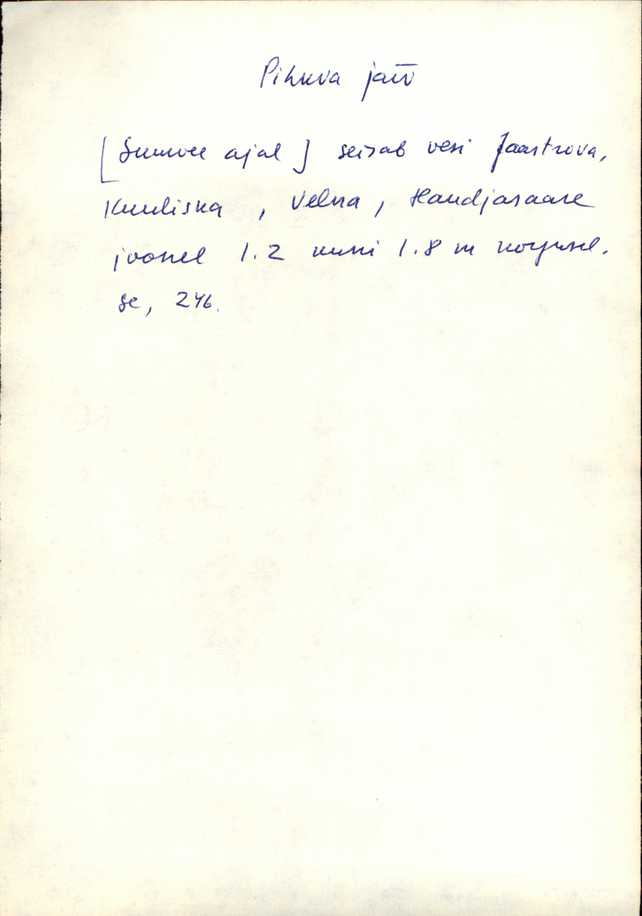 Pihkva järv
[Suurvee ajal] seisab vesi Jaastrova,
Kuuliska, Velna, Haudjasaare
joonel 1.2 kuni 1.8 m korgusel.
Se, 246.